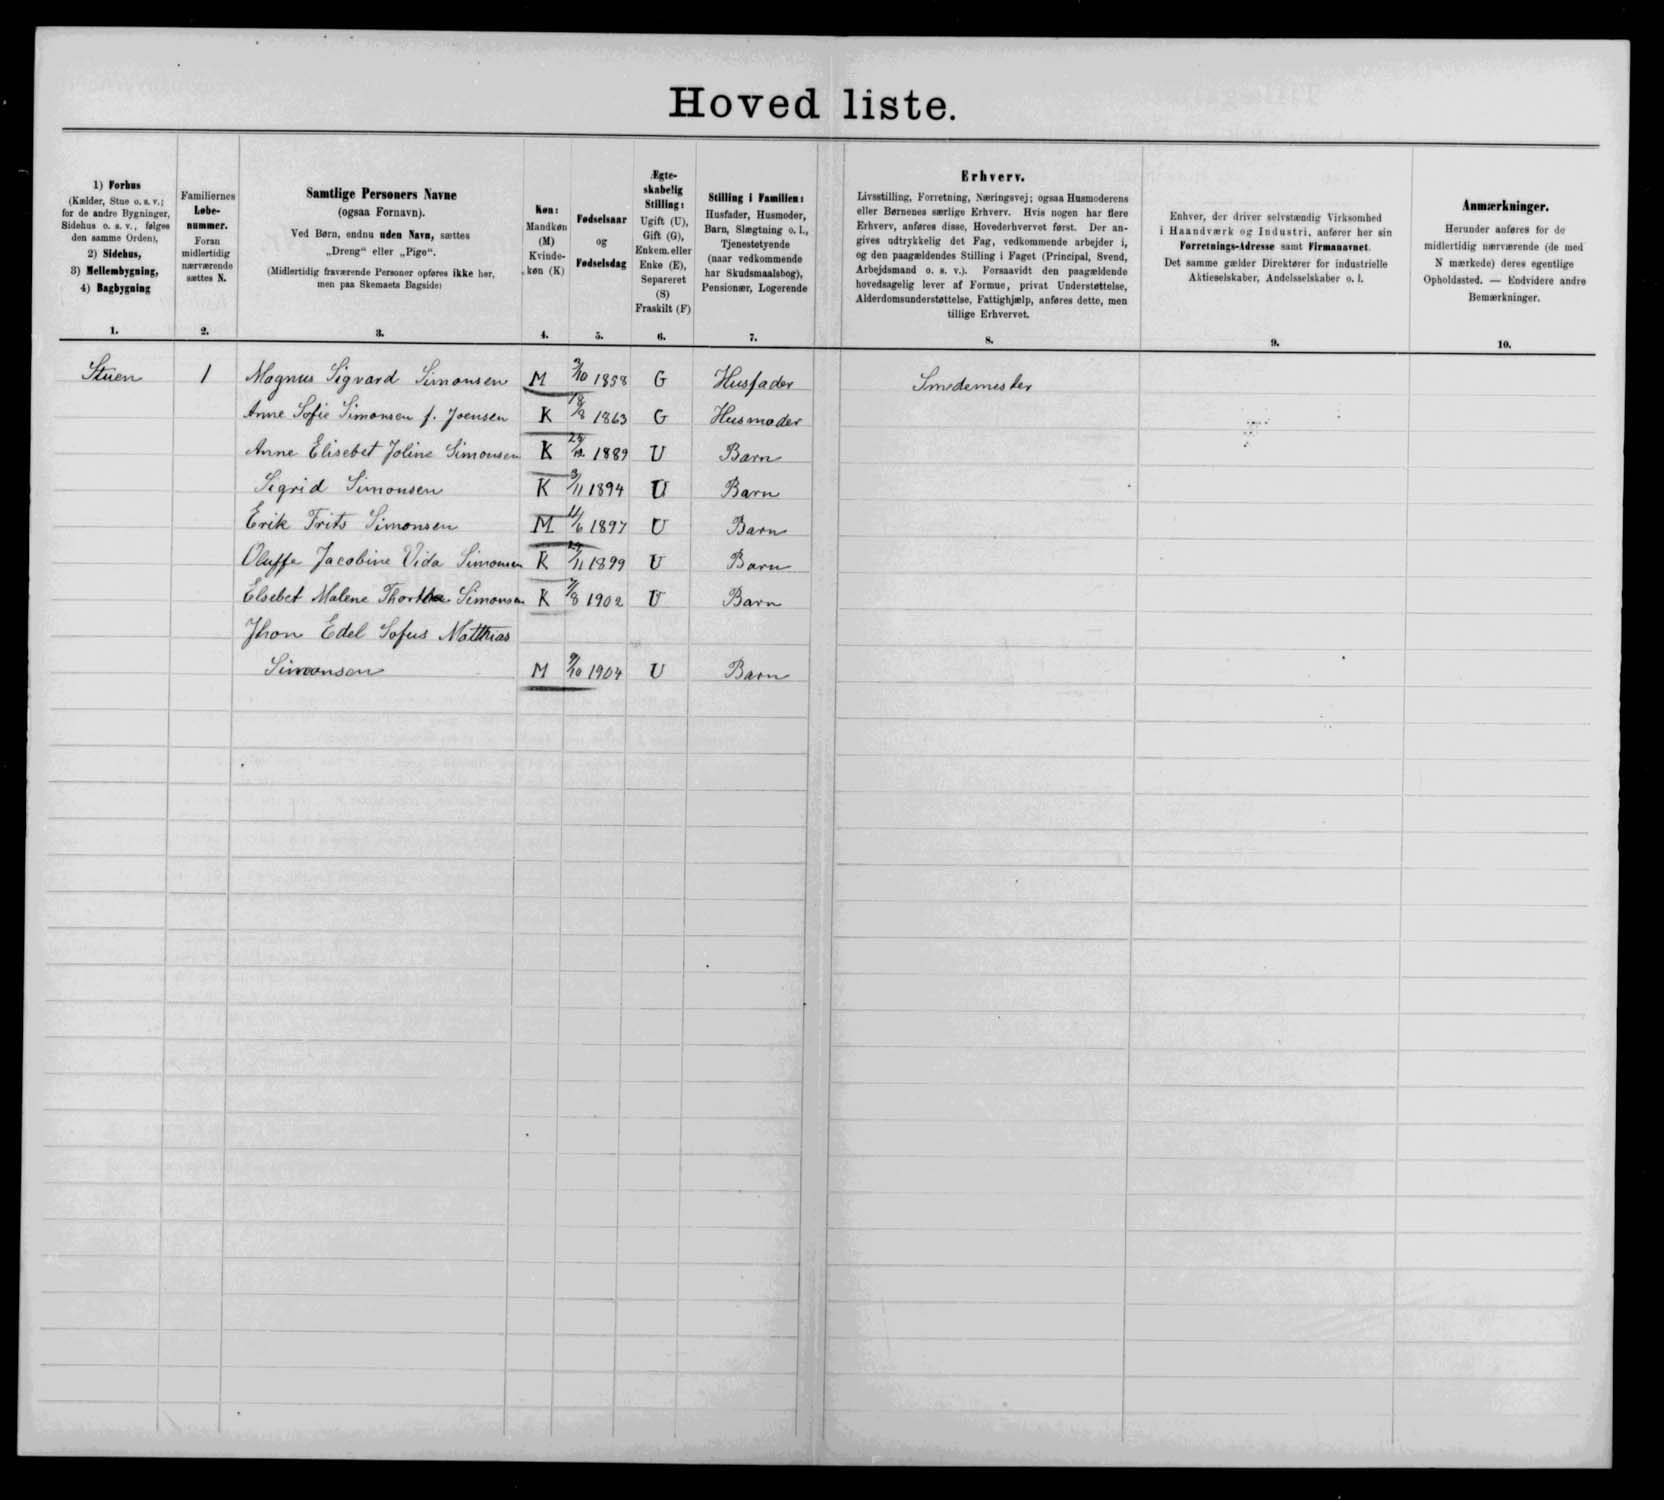 Hoved liste.
1) Forhus
(Kælder, Stue o. s. v.;
for de andre Bygninger,
Sidehus o. s. v., følges
den samme Orden),
2) Sidehus,
3) Mellembygning,
4) Bagbygning
1.
Familiernes
Løbe-
nummer.
Foran
midlertidig
nærværende
sættes N.
2.
Samtlige Personers Navne
(ogsaa Fornavn).
Ved Børn, endnu uden Navn, sættes
„Dreng“ eller „Pige“.
(Midlertidig fraværende Personer opføres ikke her,
men paa Skemaets Bagside)
3.
Køn:
Mandkøn
(M)
Kvinde-
køn (K)
4.
Fødselsaar
og
Fødselsdag
5.
Ægte-
skabelig
Stilling:
Ugift (U),
Gift (G),
Enkem. eller
Enke (E),
Separeret
(S)
Fraskilt (F)
6.
Stilling i Familien:
Husfader, Husmoder,
Barn, Slægtning o. l.,
Tjenestetyende
(naar vedkommende
har Skudsmaalsbog),
Pensionær, Logerende
7.
Erhverv.
Livsstilling, Forretning, Næringsvej; ogsaa Husmoderens
eller Børnenes særlige Erhverv. Hvis nogen har flere
Erhverv, anføres disse, Hovederhvervet først. Der an-
gives udtrykkelig det Fag, vedkommende arbejder i,
og den paagældendes Stilling i Faget (Principal, Svend,
Arbejdsmand o. s. v.). Forsaavidt den paagældende
hovedsagelig lever af Formue, privat Understøttelse,
Alderdomsunderstøttelse, Fattighjælp, anføres dette, men
tillige Erhvervet.
8.
Enhver, der driver selvstændig Virksomhed
i Haandværk og Industri, anfører her sin
Forretnings-Adresse samt Firmanavnet.
Det samme gælder Direktører for industrielle
Aktieselskaber, Andelsselskaber o. l.
9.
Anmærkninger.
Herunder anføres for de
midlertidig nærværende (de med
N mærkede) deres egentlige
Opholdssted. — Endvidere andre
Bemærkninger.
10.
Stuen 1 Magnus Sigvard Simonsen M 3/10 1858 G Husfader Smedemester
Anne Sofie Simonsen f. Joensen K 18/8 1863 G Husmoder
Anne Elisebet Joline Simonsen K 1889 U Barn
Sigrid Simonsen K 3/11 1894 U Barn
Erik Frits Simonsen M 11/6 1897 U Barn
Oluffe Jacobine Vida Simonsen K 1899 U Barn
Elsebet Malene Simonsen K 7/8 1902 U Barn
Jhon Edel Sofus Matthias
Simonsen M 9/10 1904 U Barn